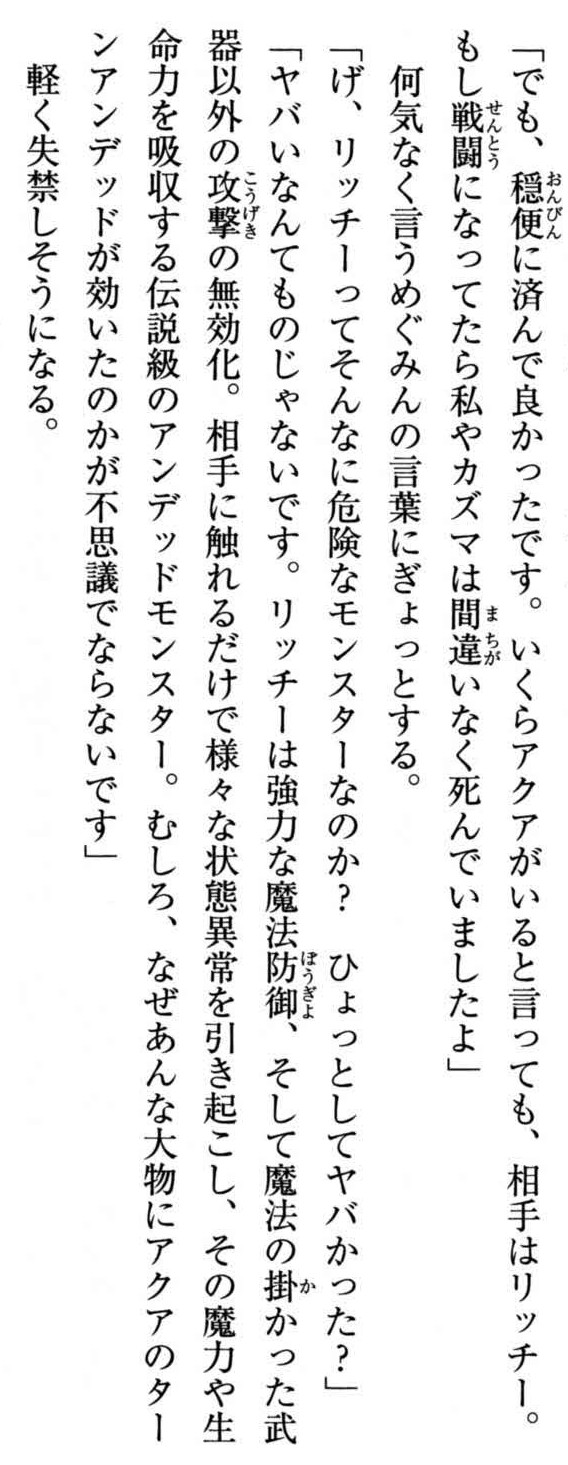 「でも、穏便に済んで良かったです。いくらアクアがいると言っても、相手はリッチー。
もし戦闘になってたら私やカズマは間違いなく死んでいましたよ」
何気なく言うめぐみんの言葉にぎょっとする。
「げ、リッチーってそんなに危険なモンスターなのか？　ひょっとしてヤバかった？」
「ヤバいなんてものじゃないです。リッチーは強力な魔法防御、そして魔法の掛かった武
器以外の攻撃の無効化。相手に触れるだけで様々な状態異常を引き起こし、その魔力や生
命力を吸収する伝説級のアンデッドモンスター。むしろ、なぜあんな大物にアクアのター
ンアンデッドが効いたのかが不思議でならないです」
軽く失禁しそうになる。